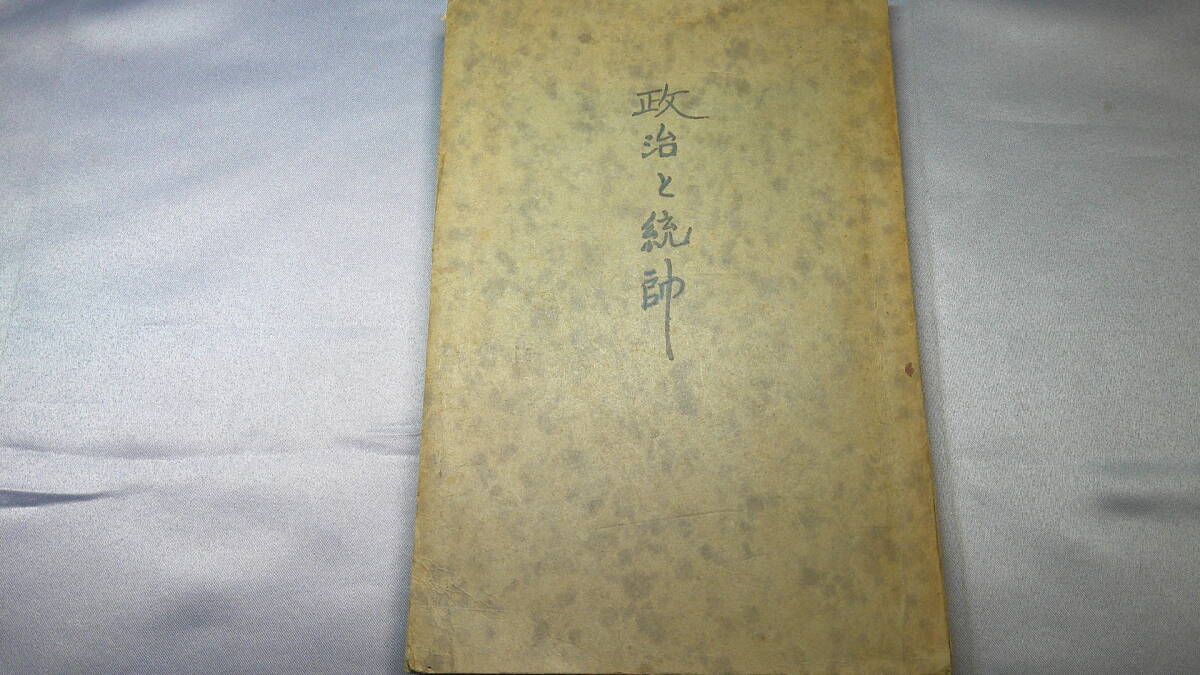 政治と統帥